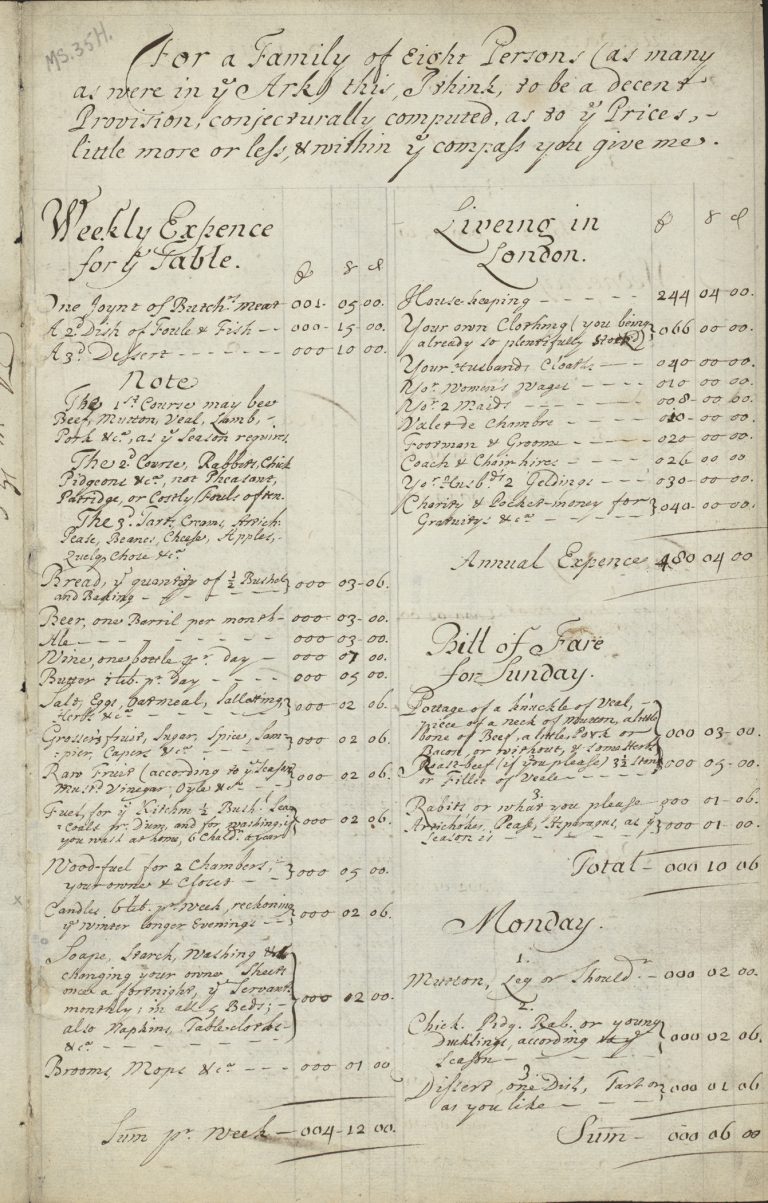 MS. 35H.
For a Family of Eight Persons (as many
as were in yᵉ Ark) this, I think, to be a decent
Provision, conjecturally computed, as to yᵉ Prices,
little more or less, & within yᵉ compass you give me.
Weekly Expence
for yᵉ Table.
£ s d
One Joynt of Butchʳˢ meat 001- 05- 00.
A 2ᵈ Dish of Foule & Fish -- 000- 15- 00.
A 3ᵈ Dessert ------- 000 10 00.
Note
The 1ˢᵗ Course may bee
Beef, Mutton, Veal, Lamb,
Pork &cᵃ, as yᵉ season requires
The 2ᵈ Course, Rabbits, Chick
Pidgeons &cᵃ, not Pheasant,
Patridge, or Costly Fouls often.
The 3ᵈ. Tart, Creams, Artich-
Pease, Beanes, Cheese, Apples,
Quelq Chose &cᵃ
Bread, yᵉ quantity of ½ Bushel
and Baking - - - } 000 03- 06.
Beer, one Barril per month- 000- 03- 00.
Ale - - - - - - 000 03- 00.
Wine, one bottle pʳ day - 000 07 00.
Butter 1 lb. pʳ day - - - - 000 05 00.
Salt, Eggs, Oatmeal, Salletting
Herbs &cᵃ - - - - } 000 02 06.
Grossers fruit, Sugar, Spice, Sam-
pier, Capers &cᵃ - - - } 000 02 06.
Raw Fruit (according to yᵉ season
Mustᵈ Vinegar, Oyle &cᵃ - - } 000 02 06.
Fuel, for yᵉ Kitchin ½ Bush. Sea
coals pʳ Diem, and for washing, if
you wash at home, 6 Chaldʳ a yeare } 000 02 06.
Wood-fuel for 2 Chambers,
your owne & Closet - - } 000 05 00.
Candles 6 lb. pʳ Week, reckoning
yᵉ winter longer Evenings - - } 000 02 06.
Soape, Starch, Washing &
changing your owne Sheets
once a fortnight, yᵉ Servants
monthly; in all 5 Beds;
also Napkins, Table-cloths
&cᵃ - - - - - - } 000 02 00.
Brooms, Mops &cᵃ - - - 000 01 00
Sum̄ pʳ. Week - 004- 12 00.
Liveing in
London.
£ s d
House keeping - - - - - 244 04 00.
Your own Clothing (you being
already so plentifully stored) } 066 00 00.
Your Husbands Cloaths - - 040 00 00
Yoʳ. Women's Wages - - - - 010 00 00
Yoʳ 2 Maids - - - - - 008- 00 00.
Valet de Chambre - - - 010- 00 00.
Footman & Groome - - - - 020 00 00.
Coach & Chair hires - - - - 026 00 00
Yoʳ Husbᵈˢ 2 Geldings - - - - 030- 00 00.
Charity & Pocket-money for
Gratuitys &cᵃ - - - - - } 040- 00 00.
Annual Expence 480 04 00
Bill of Fare
for Sunday.
Pottage of a knuckle of Veal,
piece of a neck of mutton, a little
bone of Beef, a little Pork or
Bacon or without, & some Herbs } 000 03- 00.
Roast-beef (if you please) 3½ stone
or Fillet of Veale - - - - - } 000 05 00.
3.
Rabits or what you please - 000 01- 06.
Artichokes, Pease, Asparagus, as yᵉ
season is - - - - - } 000 01- 00.
Total - 000 10 06
Monday.
1.
Mutton, Leg or Shouldʳ - 000 02 00.
2.
Chick. Pidg. Rab. or young
Ducklings, according to yᵉ
season - - - - - } 000 02- 06.
3
Dissert, one Dish, Tart or
as you like - - - } 000 01 06
Sum - 000 06 00